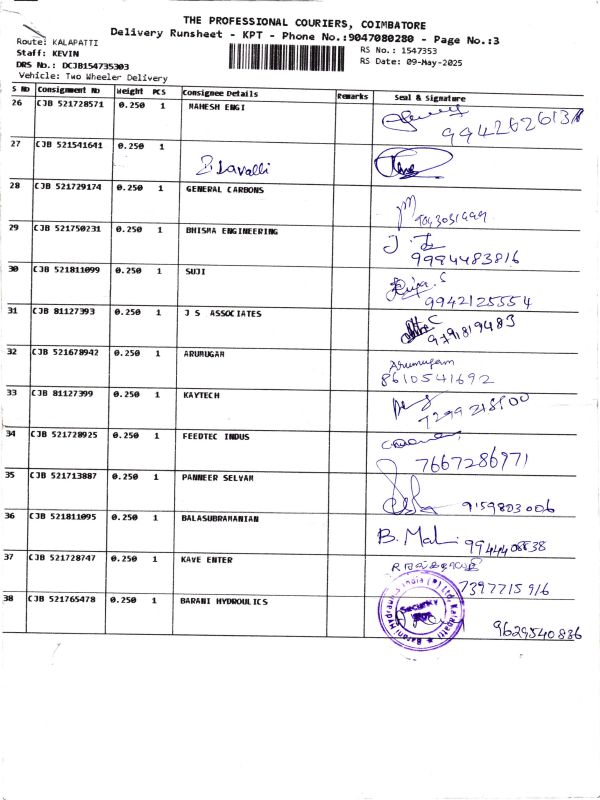 THE PROFESSIONAL COURIERS, COIMBATORE
Delivery Runsheet - KPT - Phone No.:9047080280 - Page No.:3
Route: KALAPATTI
RS No.: 1547353
Staff: KEVIN
RS Date: 09-May-2025
DRS No.: DCJB154735303
Vehicle: Two Wheeler Delivery
S No Consignment No Weight PCS Consignee Details Remarks Seal & Signature
26 CJB 521728571 0.250 1 MAHESH ENGI
9942626137
27 CJB 521541641 0.250 1
28 CJB 521729174 0.250 1 GENERAL CARBONS
29 CJB 521750231 0.250 1 BHISMA ENGINEERING
9994483816
30 CJB 521811099 0.250 1 SUJI
9942125554
31 CJB 81127393 0.250 1 J S ASSOCIATES
9791819483
32 CJB 521678942 0.250 1 ARUMUGAM Arumugam
8610541692
33 CJB 81127399 0.250 1 KAYTECH
34 CJB 521728925 0.250 1 FEEDTEC INDUS
7667286971
35 CJB 521713887 0.250 1 PANNEER SELVAM
9159803006
36 CJB 521811095 0.250 1 BALASUBRAMANIAN
37 CJB 521728747 0.250 1 KAVE ENTER
7397715916
38 CJB 521765478 0.250 1 BARANI HYDROULICS
Security
9629540836